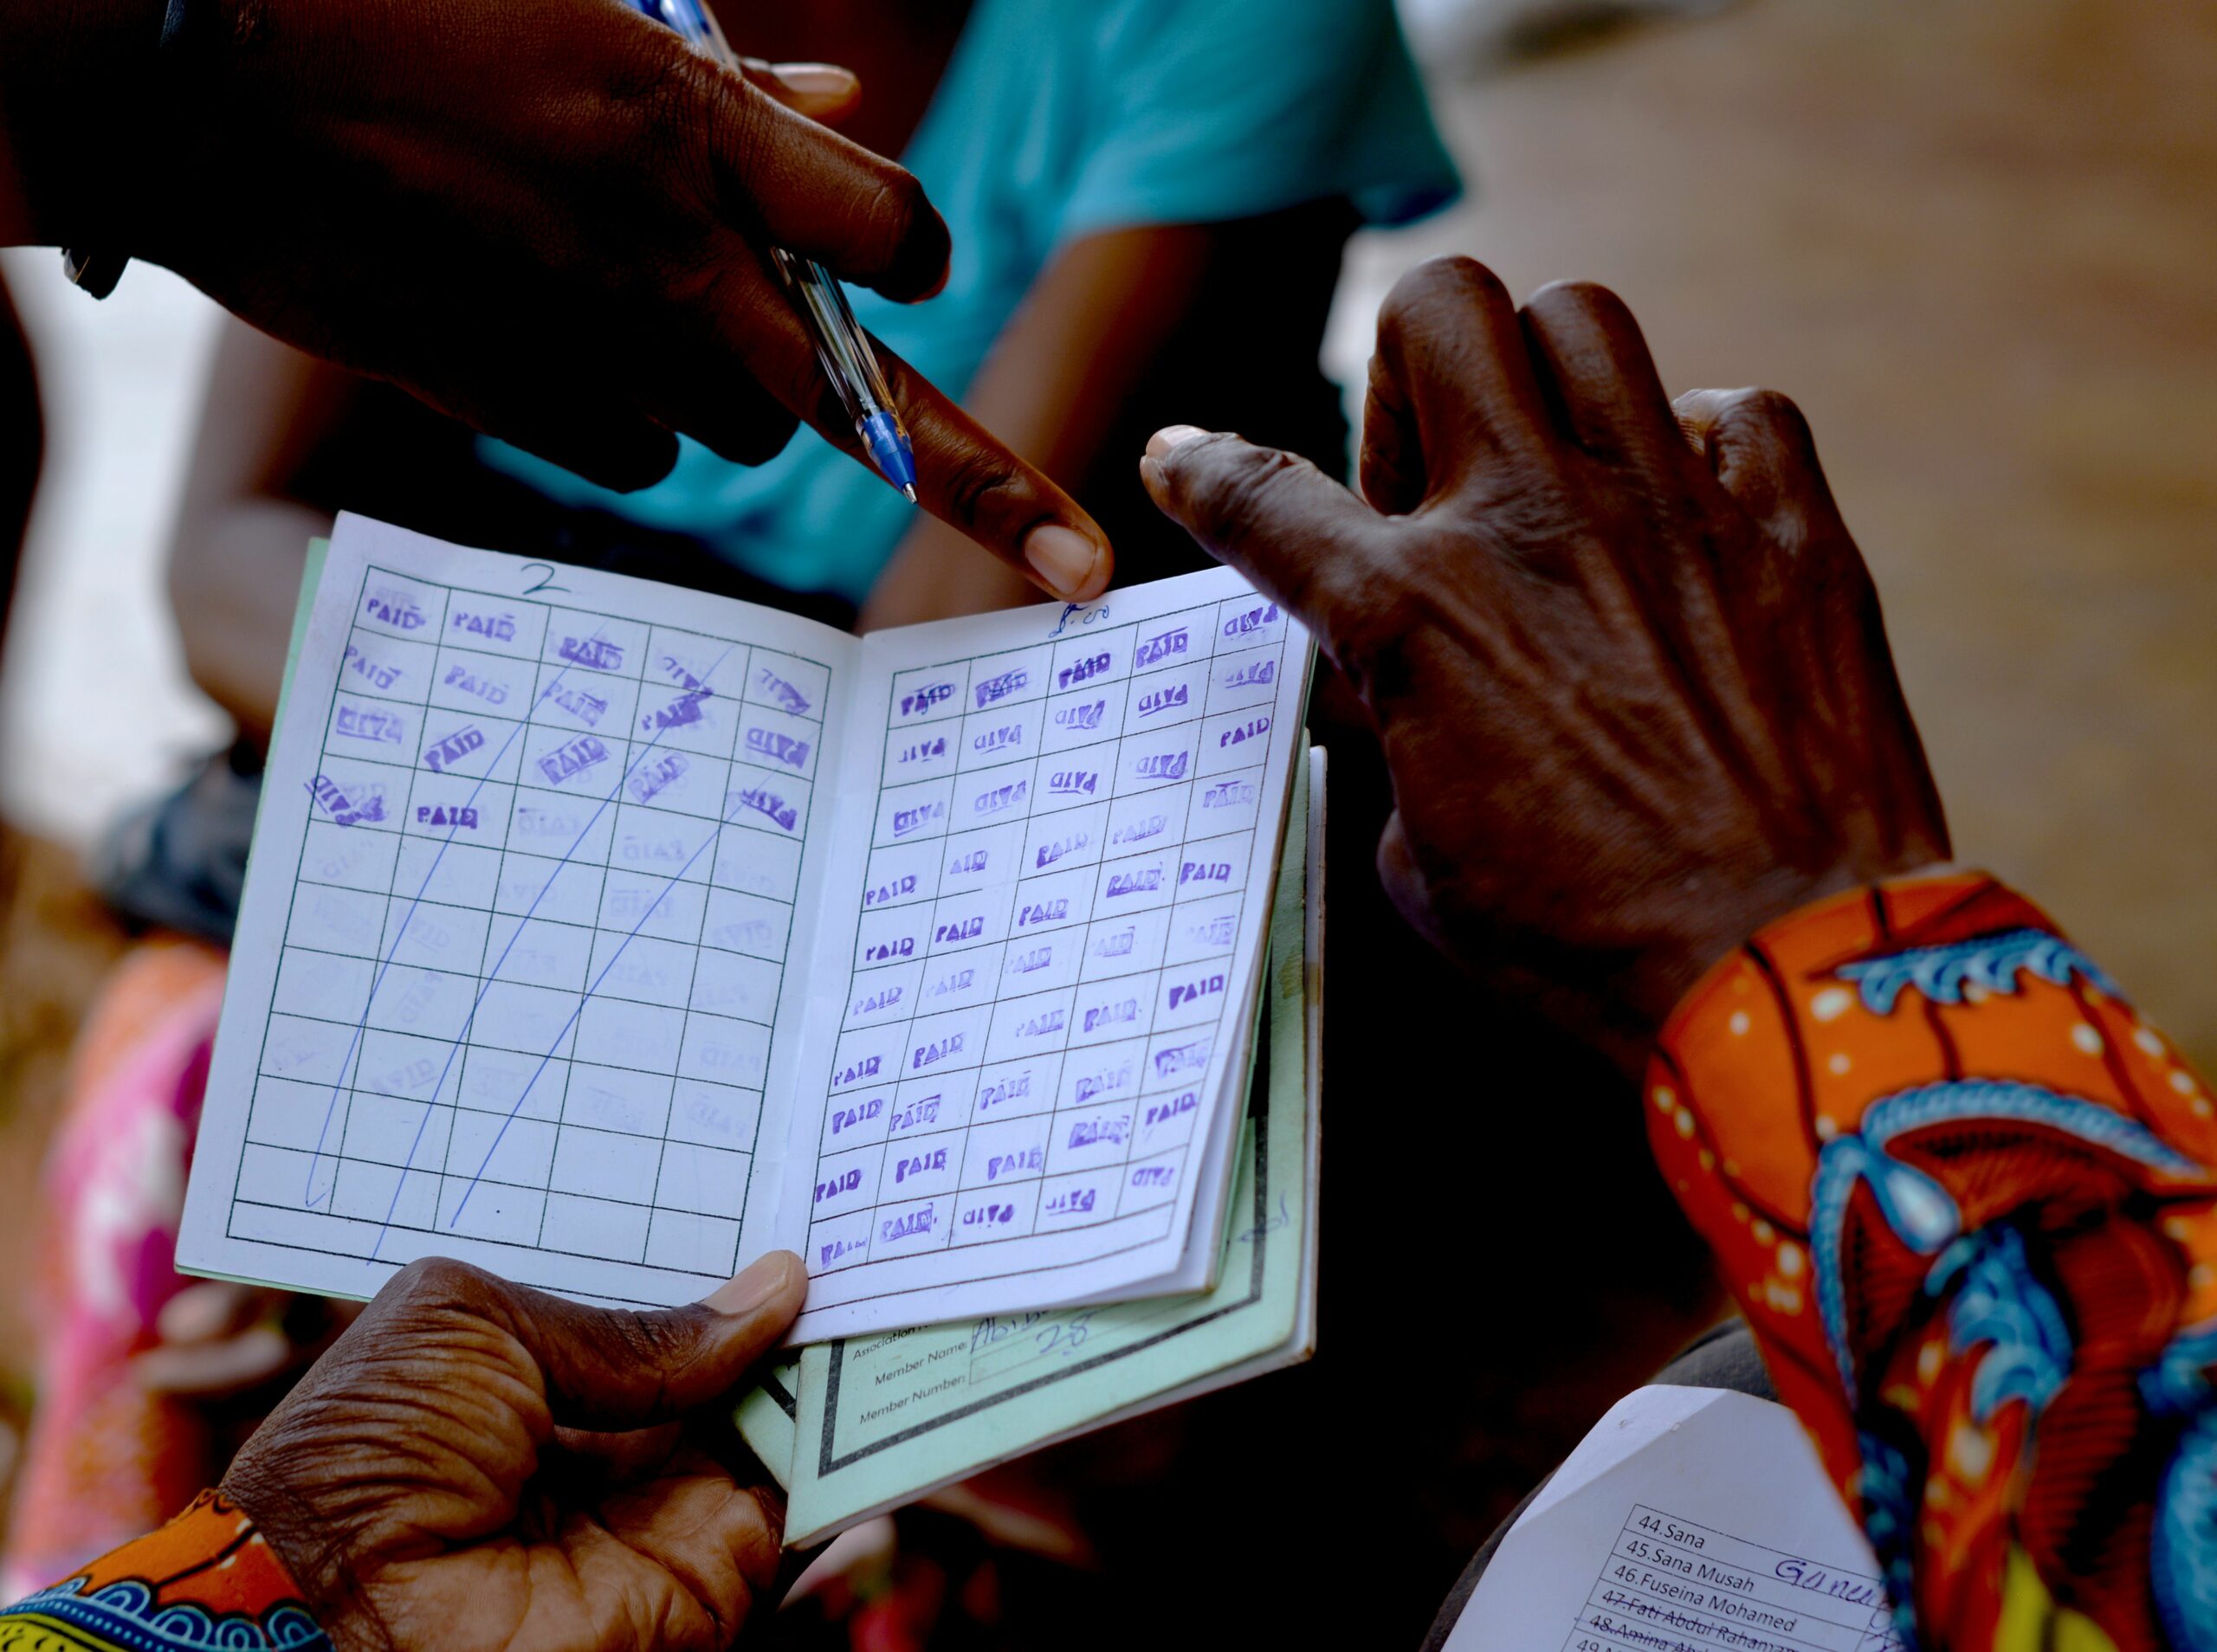 2
PAID PAID PAID PAID PAID
PAID PAID PAID PAID PAID
PAID PAID PAID PAID PAID
PAID PAID
5.00
PAID PAID PAID PAID PAID
PAID PAID PAID PAID PAID
PAID PAID PAID PAID PAID
PAID PAID PAID PAID PAID
PAID PAID PAID PAID PAID
PAID PAID PAID PAID PAID
PAID PAID PAID PAID PAID
PAID PAID PAID PAID PAID
PAID PAID PAID PAID PAID
PAID PAID PAID PAID PAID
Association
Member Name:
28
Member Number:
44.Sana
45.Sana Musah
46.Fuseina Mohamed
47.Fati Abdul Rahaman
48.Amina
49.